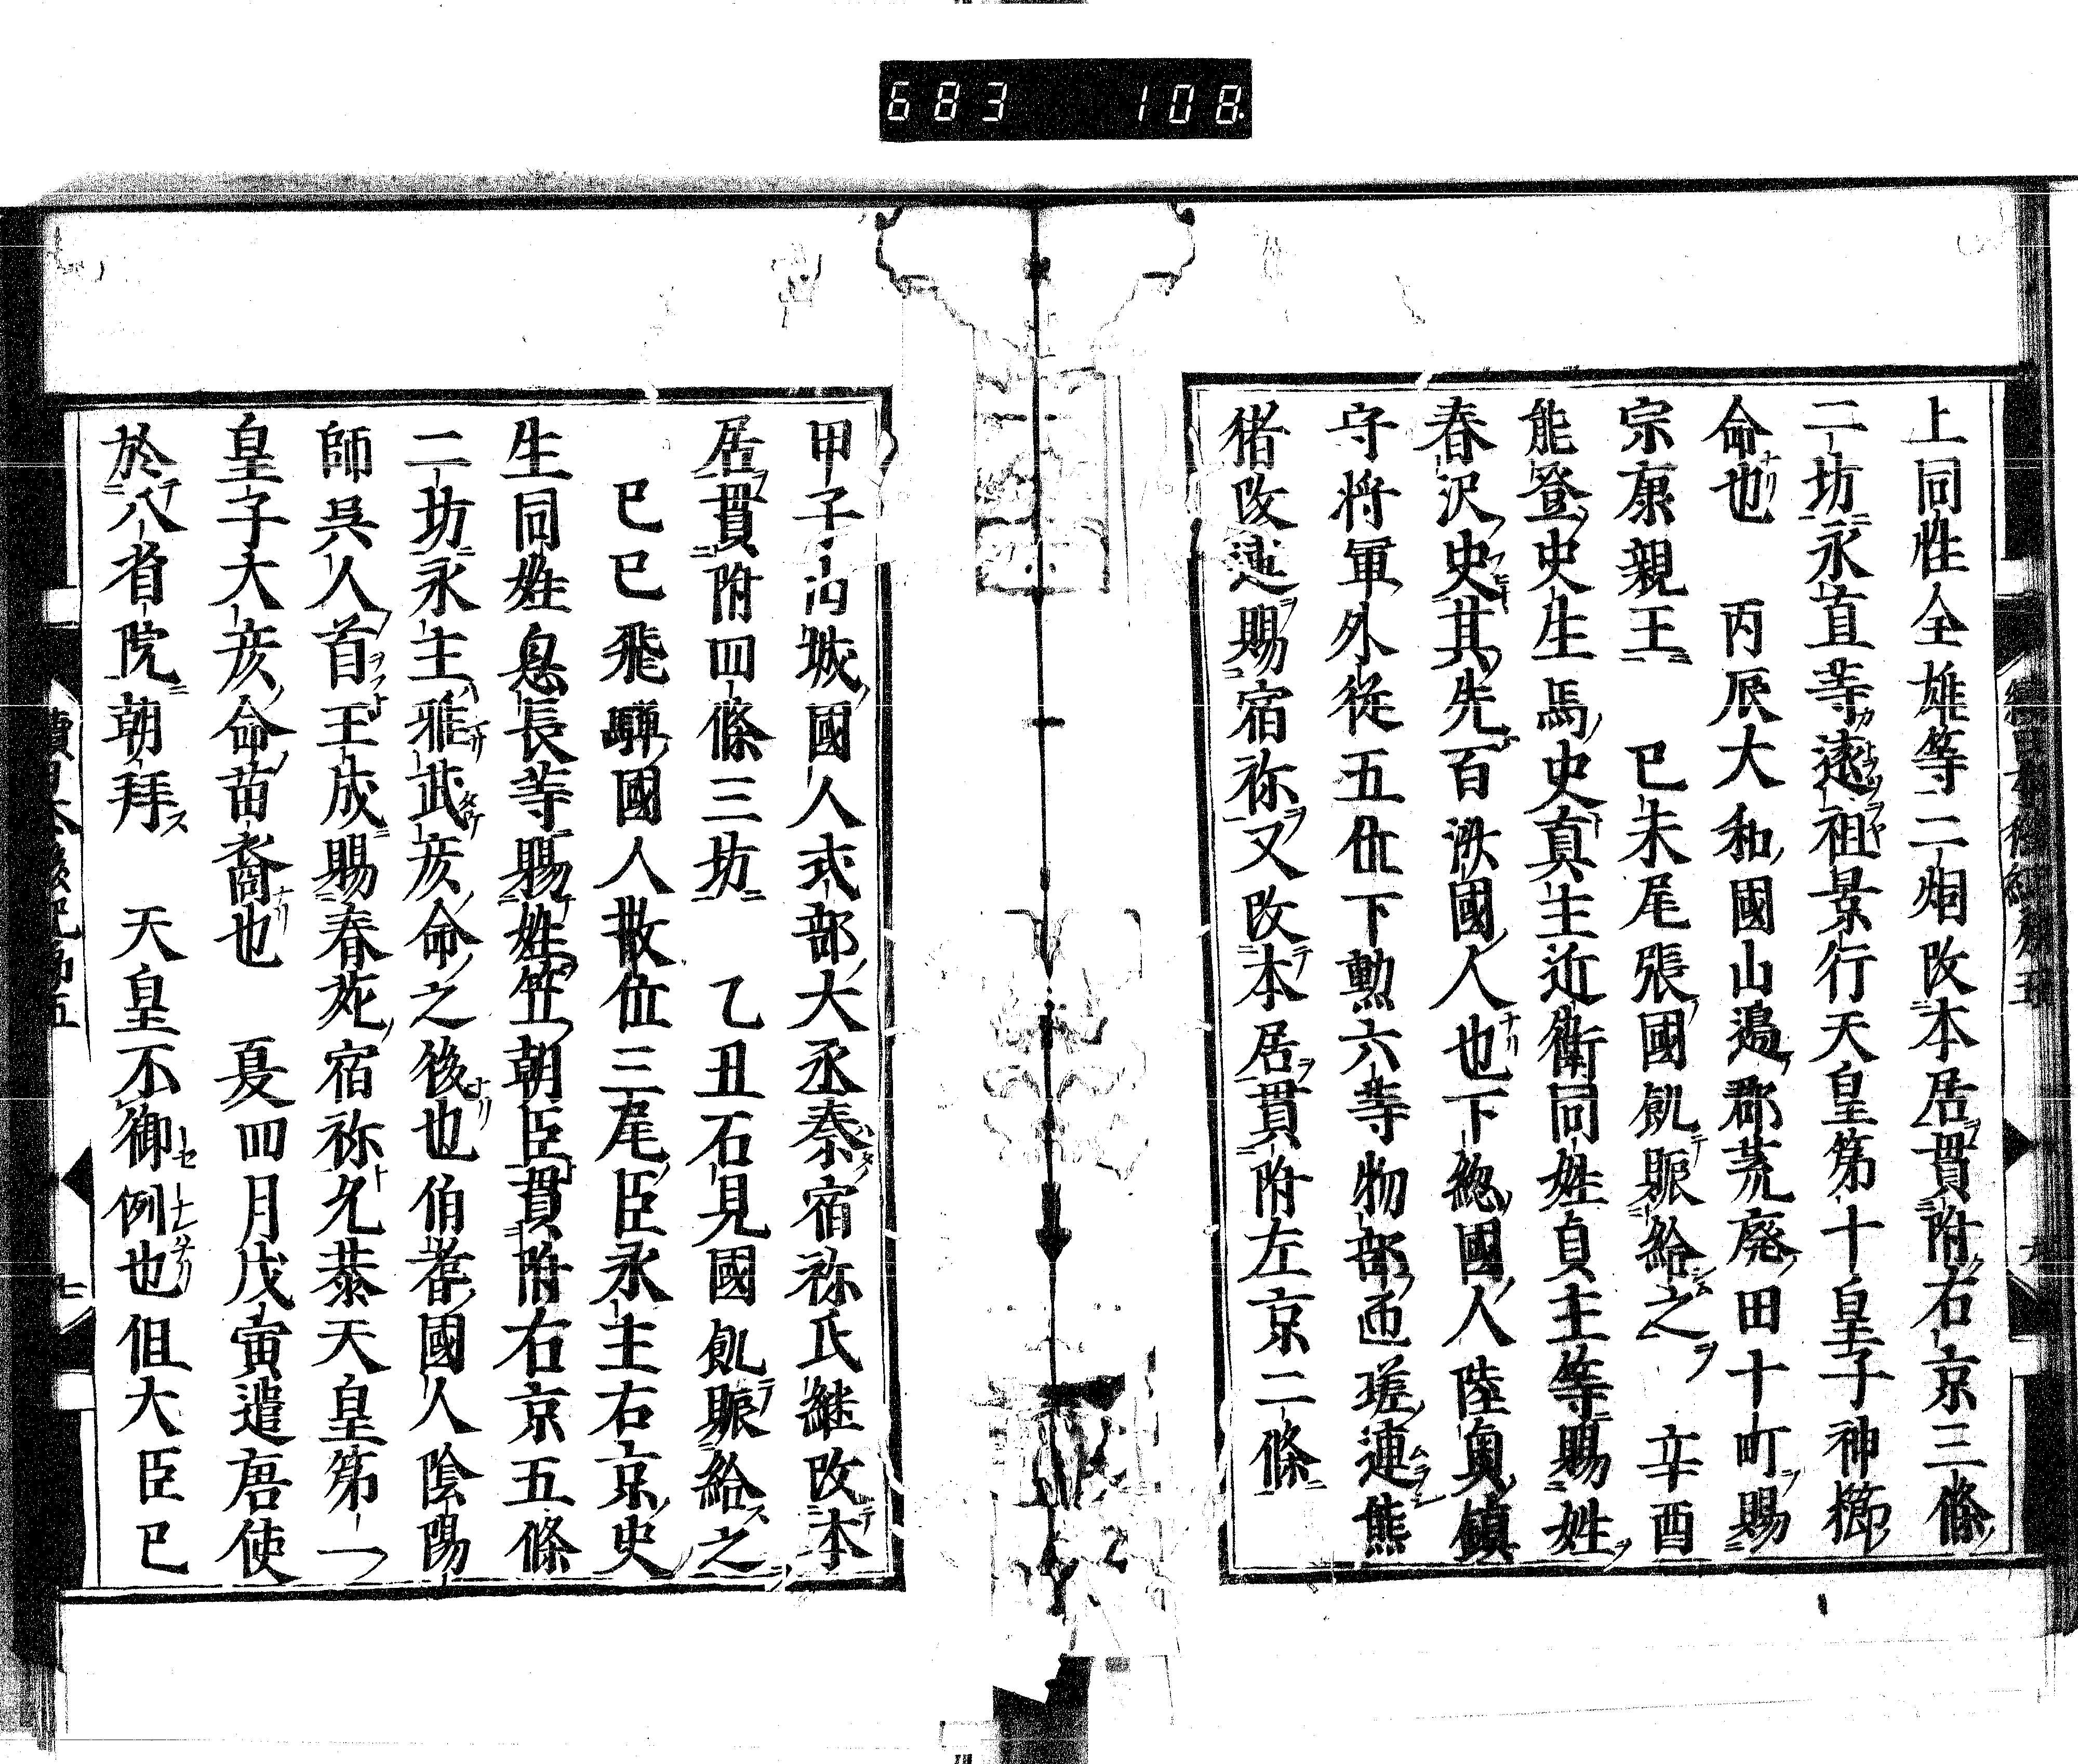 683 108
上同姓全雄等二烟改本居貫附右京三條
二坊永直等遠祖景行天皇第十皇子神櫛
命也 丙辰大和國山邊郡荒廃田十町賜
宗康親王 己未尾張國飢賑給之 辛酉
能登史生馬史真主近衛同姓貞主等賜姓
春沢史其先百濟國人也下総國人陸奥鎮
守将軍外従五位下勲六等物部匝瑳連熊
猪改連賜宿祢又改本居貫附左京二條
甲子山城國人式部大丞秦宿祢氏継改本
居貫附四條三坊 乙丑石見國飢賑給之
己巳飛騨國人散位三尾臣永主右京史
生同姓息長等賜姓笠朝臣貫附右京五條
二坊永主稚武彦命之後也伯耆國人陰陽
師呉人首王成賜春苑宿祢允恭天皇第一
皇子大彦命苗裔也 夏四月戊寅遣唐使
於八省院朝拜 天皇不御例也但大臣已